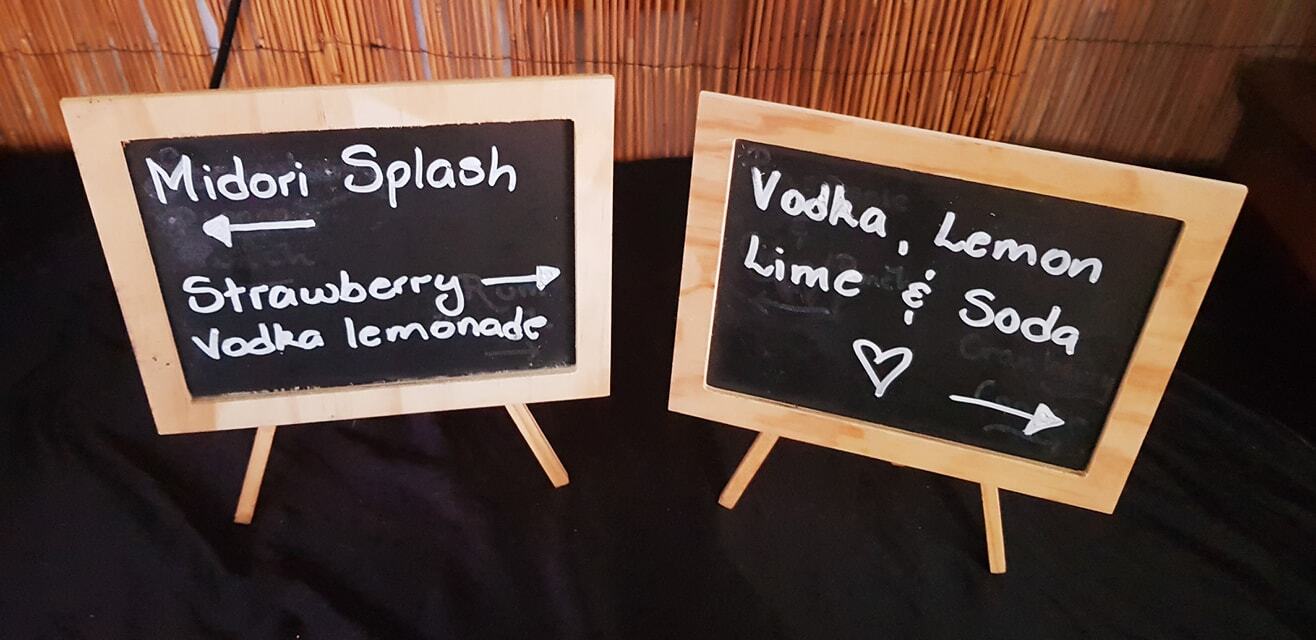 Midori Splash
Strawberry
Vodka lemonade
Vodka, Lemon
Lime & Soda